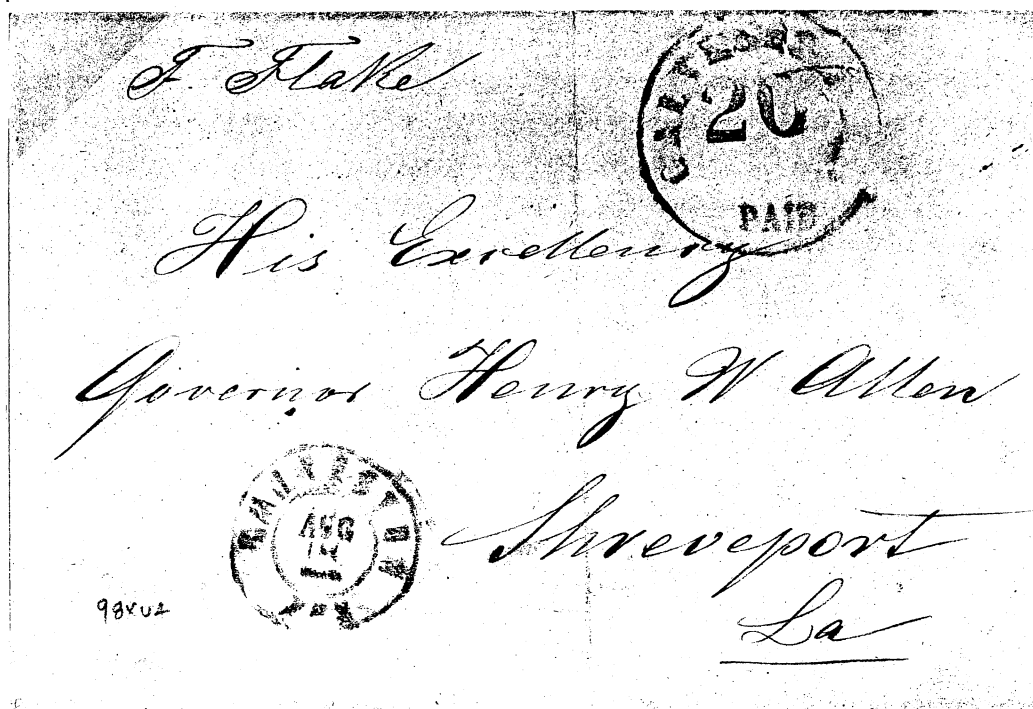 F. Flake
GALVESTON
20
PAID
His Excellency
Governor Henry W Allen
GALVESTON
AUG
Shreveport
98XU2
La